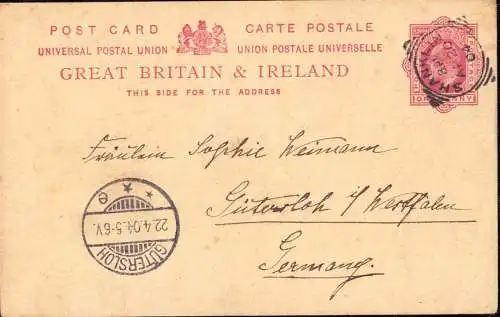 POST CARD CARTE POSTALE
UNIVERSAL POSTAL UNION UNION POSTALE UNIVERSELLE
GREAT BRITAIN & IRELAND
THIS SIDE FOR THE ADDRESS
SHANKLIN
ONE PENNY
Fräulein Sophie Weimann
Gütersloh i/ Westfalen
Germany.
GÜTERSLOH
22.4.04.5-6V.
* * e